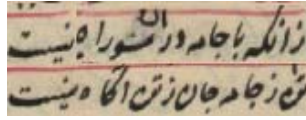 زانکه با جامه در ان سو راه نیست
تن ز جامه جان ز تن اگاه نیست